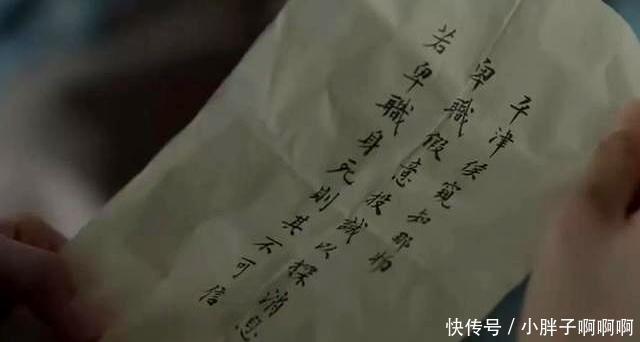 平津侯知那物
卑職假意投誠以探消息
若卑職身死則其不可信
快传号 / 小胖子啊啊啊